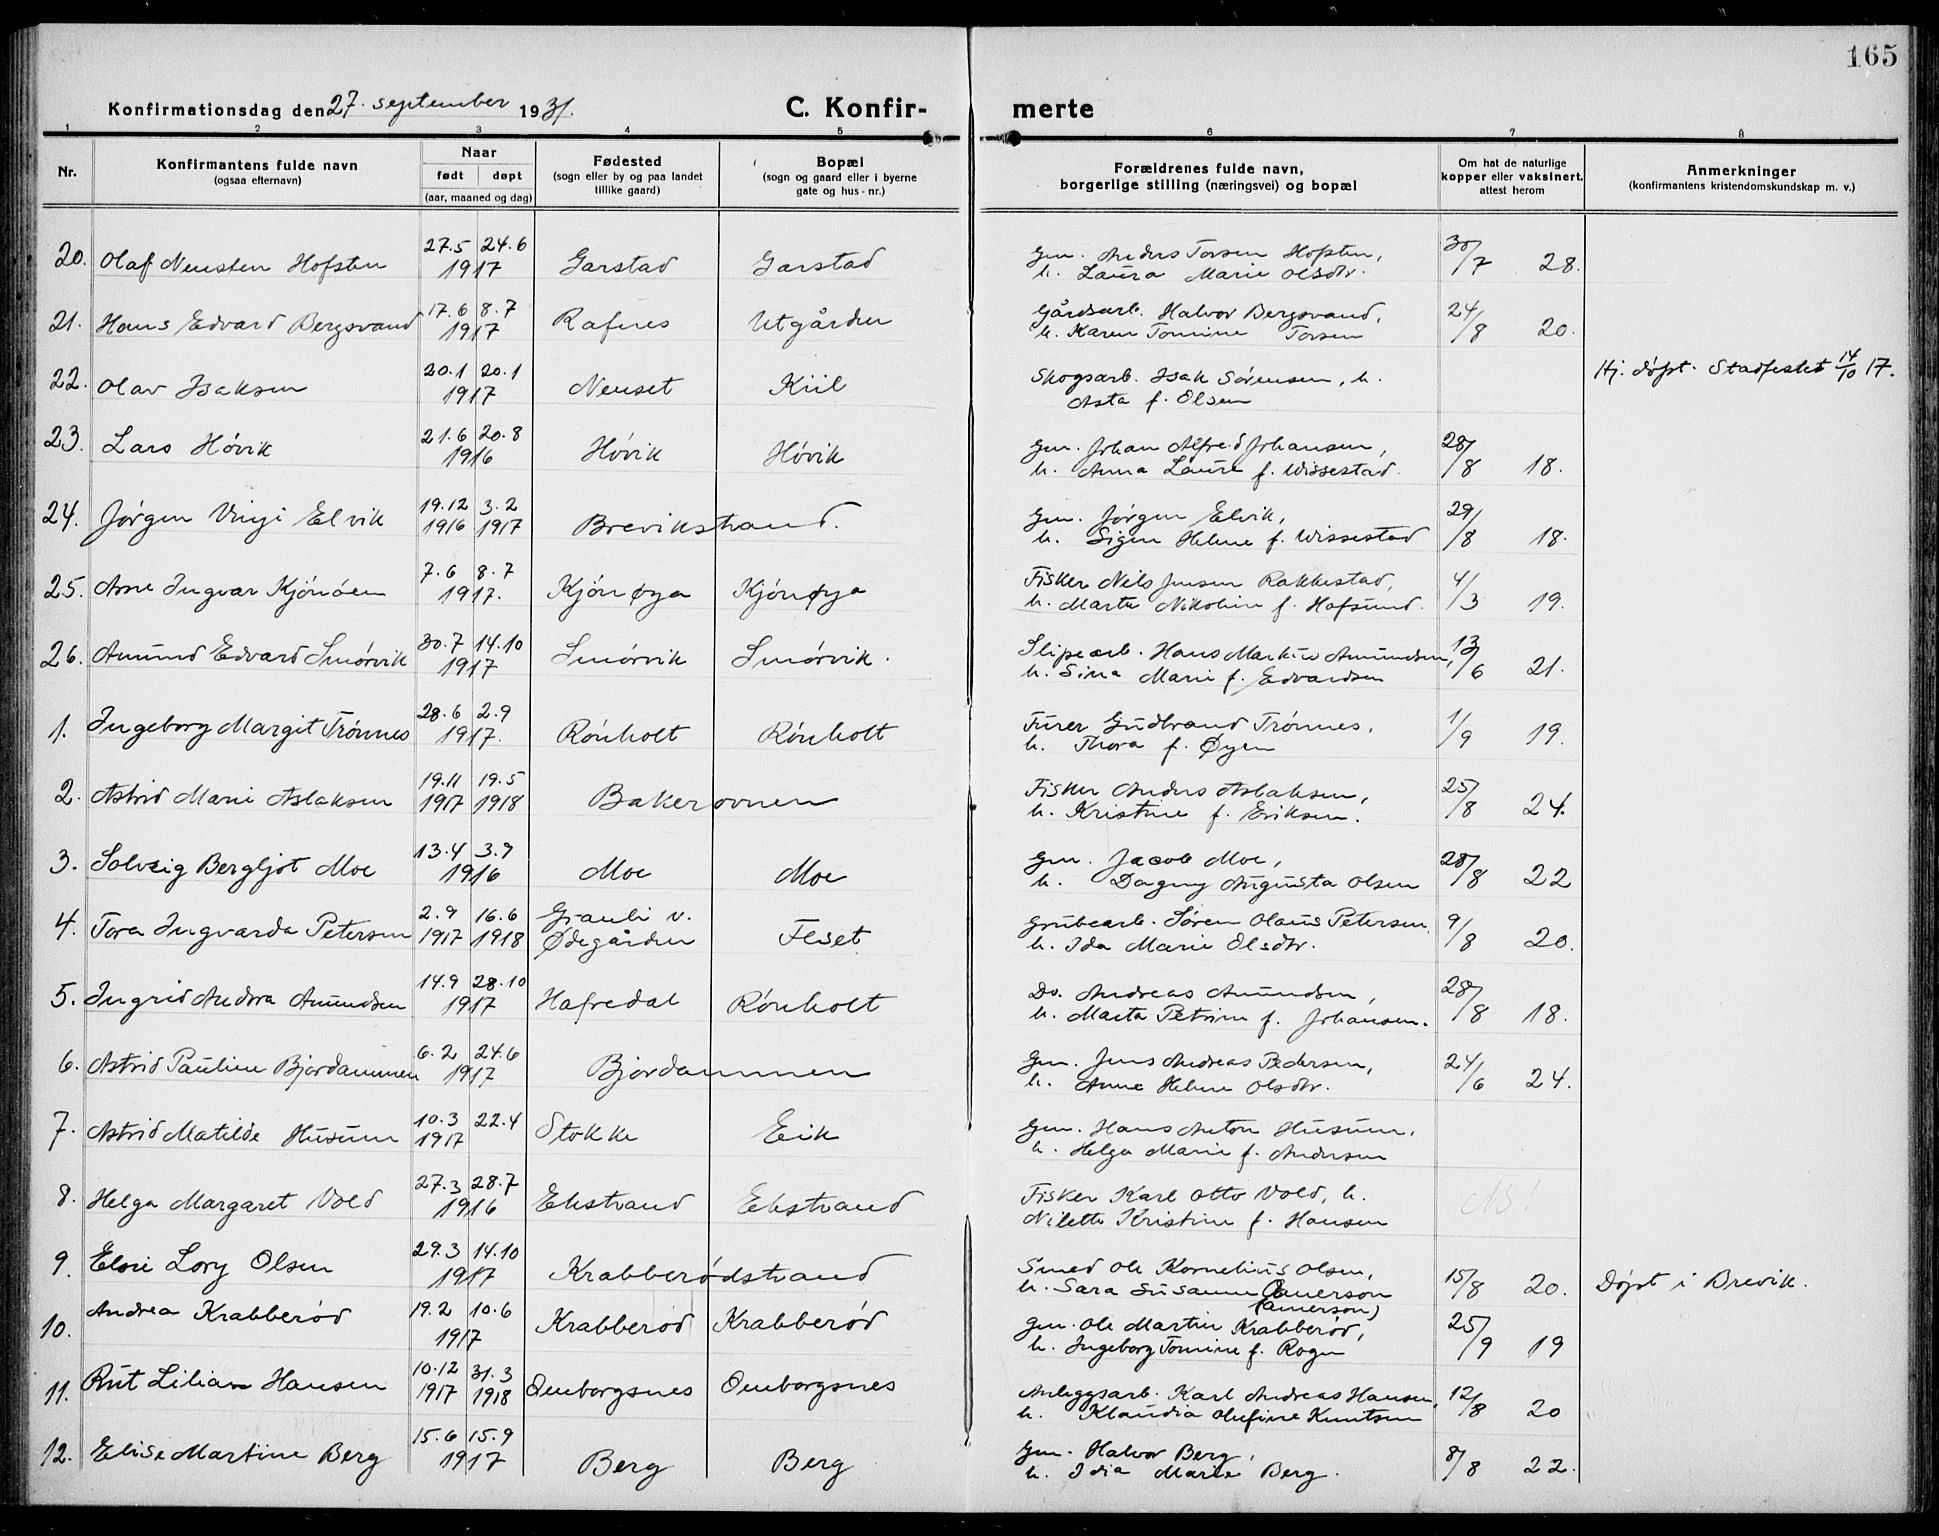 165
Konfirmationsdag den 27. september 1931.
C. Konfirmerte
1 2 3 4 5 6 7 8
Nr.
Konfirmantens fulde navn
(ogsaa efternavn)
Naar
født døpt
(aar, maaned og dag)
Fødested
(sogn eller by og paa landet
tillike gaard)
Bopæl
(sogn og gaard eller i byerne
gate og hus-nr.)
Forældrenes fulde navn,
borgerlige stilling (næringsvei) og bopæl
Om hat de naturlige
kopper eller vaksinert,
attest herom
Anmerkninger
(konfirmantens kristendomskundskap m. v.)
20. Olaf Neusten Hofsten 27.5 24.6 1917 Garstad Garstad Gm. Anders Torsen Hofsten, 30/7 28.
h. Laura Marie Olsdtr.
21. Hans Edvard Bergsvand 17.6 8.7 1917 Rafnes Utgården Gårdsarb. Halvor Bergsvand, 24/8 20.
h. Karen Tomine Torsen
22. Olav Isaksen 20.1 20.1 1917 Neuset Kiil Skogsarb. Isak Sørensen, h. Hj. døpt. Stadfestet 14/10 17.
Asta f. Olsen
23. Lars Høvik 21.6 20.8 1916 Høvik Høvik Gm. Johan Alfred Johansen, 28/8 18.
h. Anna Laura f. Wissestad.
24. Jørgen Elvik 19.12 1916 3.2 1917 Brevikstrand. Gm. Jørgen Elvik, 29/8 18.
h. Signe Helene f. Wissestad
25. Arne Ingvar Kjønøen 7.6 8.7 1917. Kjønøya Kjønøya Fisker Nils Jensen Rakkestad, 4/3 19.
h. Marta Nikoline f. Hafsund.
26. Amund Edvard Smørvik 30.7 14.10 1917 Smørvik Smørvik. Slipearb. Hans Markus Amundsen, 13/6 21.
h. Sina Marie f. Edvardsen
1. Ingeborg Margit Trønnes 28.6 2.9 1917. Rønholt Rønholt Furer Gudbrand Trønnes, 1/9 19.
h. Thora f. Øyen
2. Astrid Marie Aslaksen 19.11 1917 19.5 1918 Bakerovnen Fisker Anders Aslaksen, 25/8 24.
h. Kristine f. Eriksen.
3. Solveig Bergljot Moe 13.4 3.9 1916 Moe Moe Gm. Jacob Moe, 28/8 22
h. Dagny Augusta Olsen
4. Tora Ingvarda Petersen 2.9 1917 16.6 1918 Grauli v. Ødegården Feset Grubearb. Søren Olaus Petersen, 9/8 20.
h. Ida Marie Olsdtr.
5. Ingrid Andora Amundsen 14.9 28.10 1917 Hafredal Rønholt Do. Andreas Amundsen, 28/8 18.
h. Marta Petrine f. Johansen.
6. Astrid Pauline Bjordammen 6.2 24.6 1917 Bjordammen Gm. Jens Andreas Pedersen, 24/6 24.
h. Anne Helene Olsdtr.
7. Astrid Matilde Husum 10.3 22.4 1917 Stokke Eik Gm. Hans Anton Husum,
h. Helga Marie f. Andersen
8. Helga Margaret Vold 27.3 28.7 1916 Ekstrand Ekstrand Fisker Karl Otto Vold, h. NB!
Nilette Kristine f. Hansen
9. Elsie Lory Olsen 29.3 14.10 1917 Krabberødstrand Smed Ole Kornelius Olsen, 15/8 20. Døpt i Brevik.
h. Sara Susanne Amerson
(Amerson)
10. Andrea Krabberød 19.2 10.6 1917 Krabberød Krabberød Gm. Ole Martin Krabberød, 25/9 19
h. Ingeborg Tomine f. Rogn
11. Rut Lilian Hansen 10.12 1917 31.3 1918 Omborgsnes Omborgsnes Anleggsarb. Karl Andreas Hansen, 12/8 20
h. Klaudia Olufine Knutsen
12. Elise Martine Berg 15.6 15.9 1917 Berg Berg Gm. Halvor Berg, 8/8 22.
h. Idia Marie Berg.